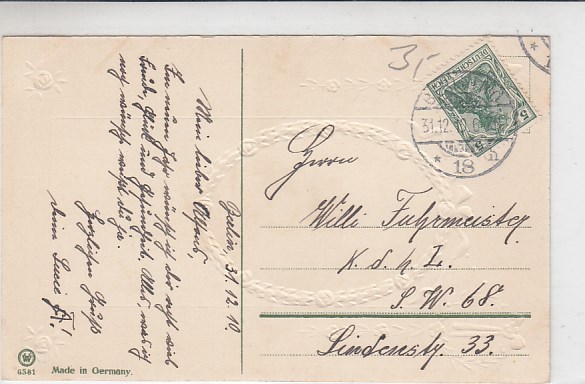 Berlin, 31.12.10.
Mein lieber
Im neuen Jahr wünsch ich dir recht viel
Freude, Glück und Gesundheit. Alles, was ich
noch wünsche weißt du ja.
Herzlichen Gruß
deine Lucie
3,-
DEUTSCHES REICH
5
5
31.12.
* 18 h
Herrn
Willi Fuhrmeister
K. d. h. L.
S. W. 68.
Lindenstr. 33.
6581
Made in Germany.